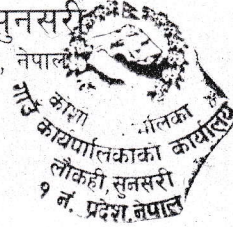 सुनसरी
, नेपाल
गाउँ कार्यपालिकाको कार्यालय
लौकही, सुनसरी
१ नं. प्रदेश, नेपाल